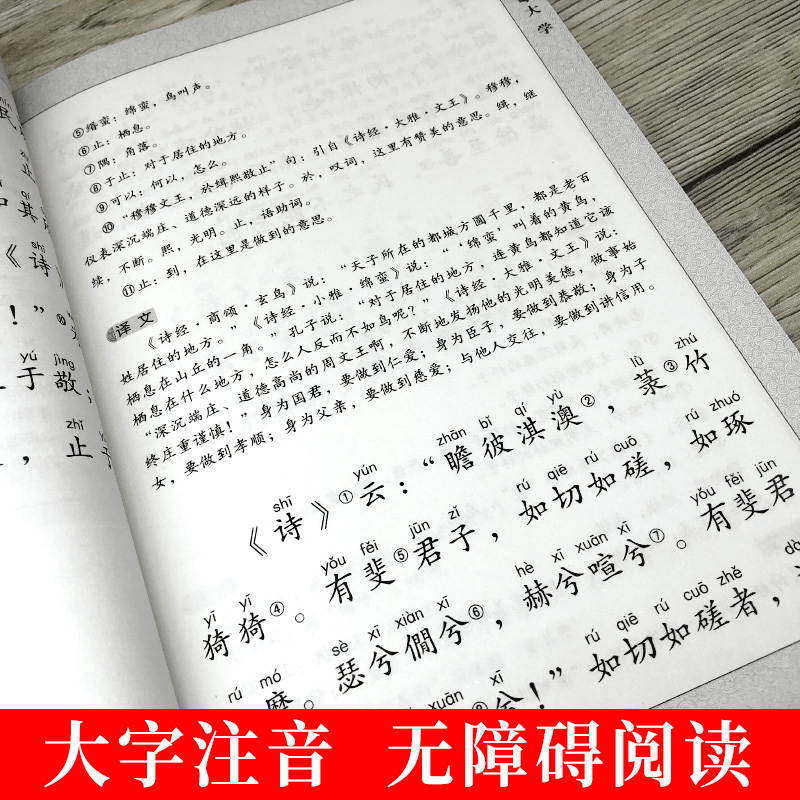 大学
⑤缗蛮：绵蛮，鸟叫声。
⑥止：栖息。
⑦隅：角落。
⑧于止：对于居住的地方。
⑨可以：何以，怎么。
⑩“穆穆文王，於缉熙敬止”句：引自《诗经·大雅·文王》。穆穆，
仪表深沉端庄、道德深远的样子。於，叹词，这里有赞美的意思。缉，继
续，不断。熙，光明。止，语助词。
⑪止：到，在这里是做到的意思。
译文
《诗经·商颂·玄鸟》说：“天子所在的都城方圆千里，都是老百
姓居住的地方。”《诗经·小雅·绵蛮》说：“‘绵蛮’叫着的黄鸟，
栖息在山丘的一角。”孔子说：“对于居住的地方，连黄鸟都知道它该
栖息在什么地方，怎么人反而不如鸟呢？”《诗经·大雅·文王》说：
“深沉端庄、道德高尚的周文王啊，不断地发扬他的光明美德，做事始
终庄重谨慎！”身为国君，要做到仁爱；身为臣子，要做到恭敬；身为子
女，要做到孝顺；身为父亲，要做到慈爱；与他人交往，要做到讲信用。
shī yún zhān bǐ qí yù lù zhú
《诗》①云：“瞻彼淇澳②，菉③竹
yī yī yǒu fěi jūn zǐ rú qiē rú cuō rú zhuó
猗猗④。有斐⑤君子，如切如磋，如琢
rú mó sè xī xiàn xī hè xī xuān xī yǒu fěi jūn
如磨。瑟兮僩兮⑥，赫兮喧兮⑦。有斐君
xuān xī rú qiē rú cuō zhě dà
兮！”如切如磋者，
qí
其
shī
《诗》
！”⑩
yú jìng
于敬；
zhǐ
，止于
大字注音 无障碍阅读